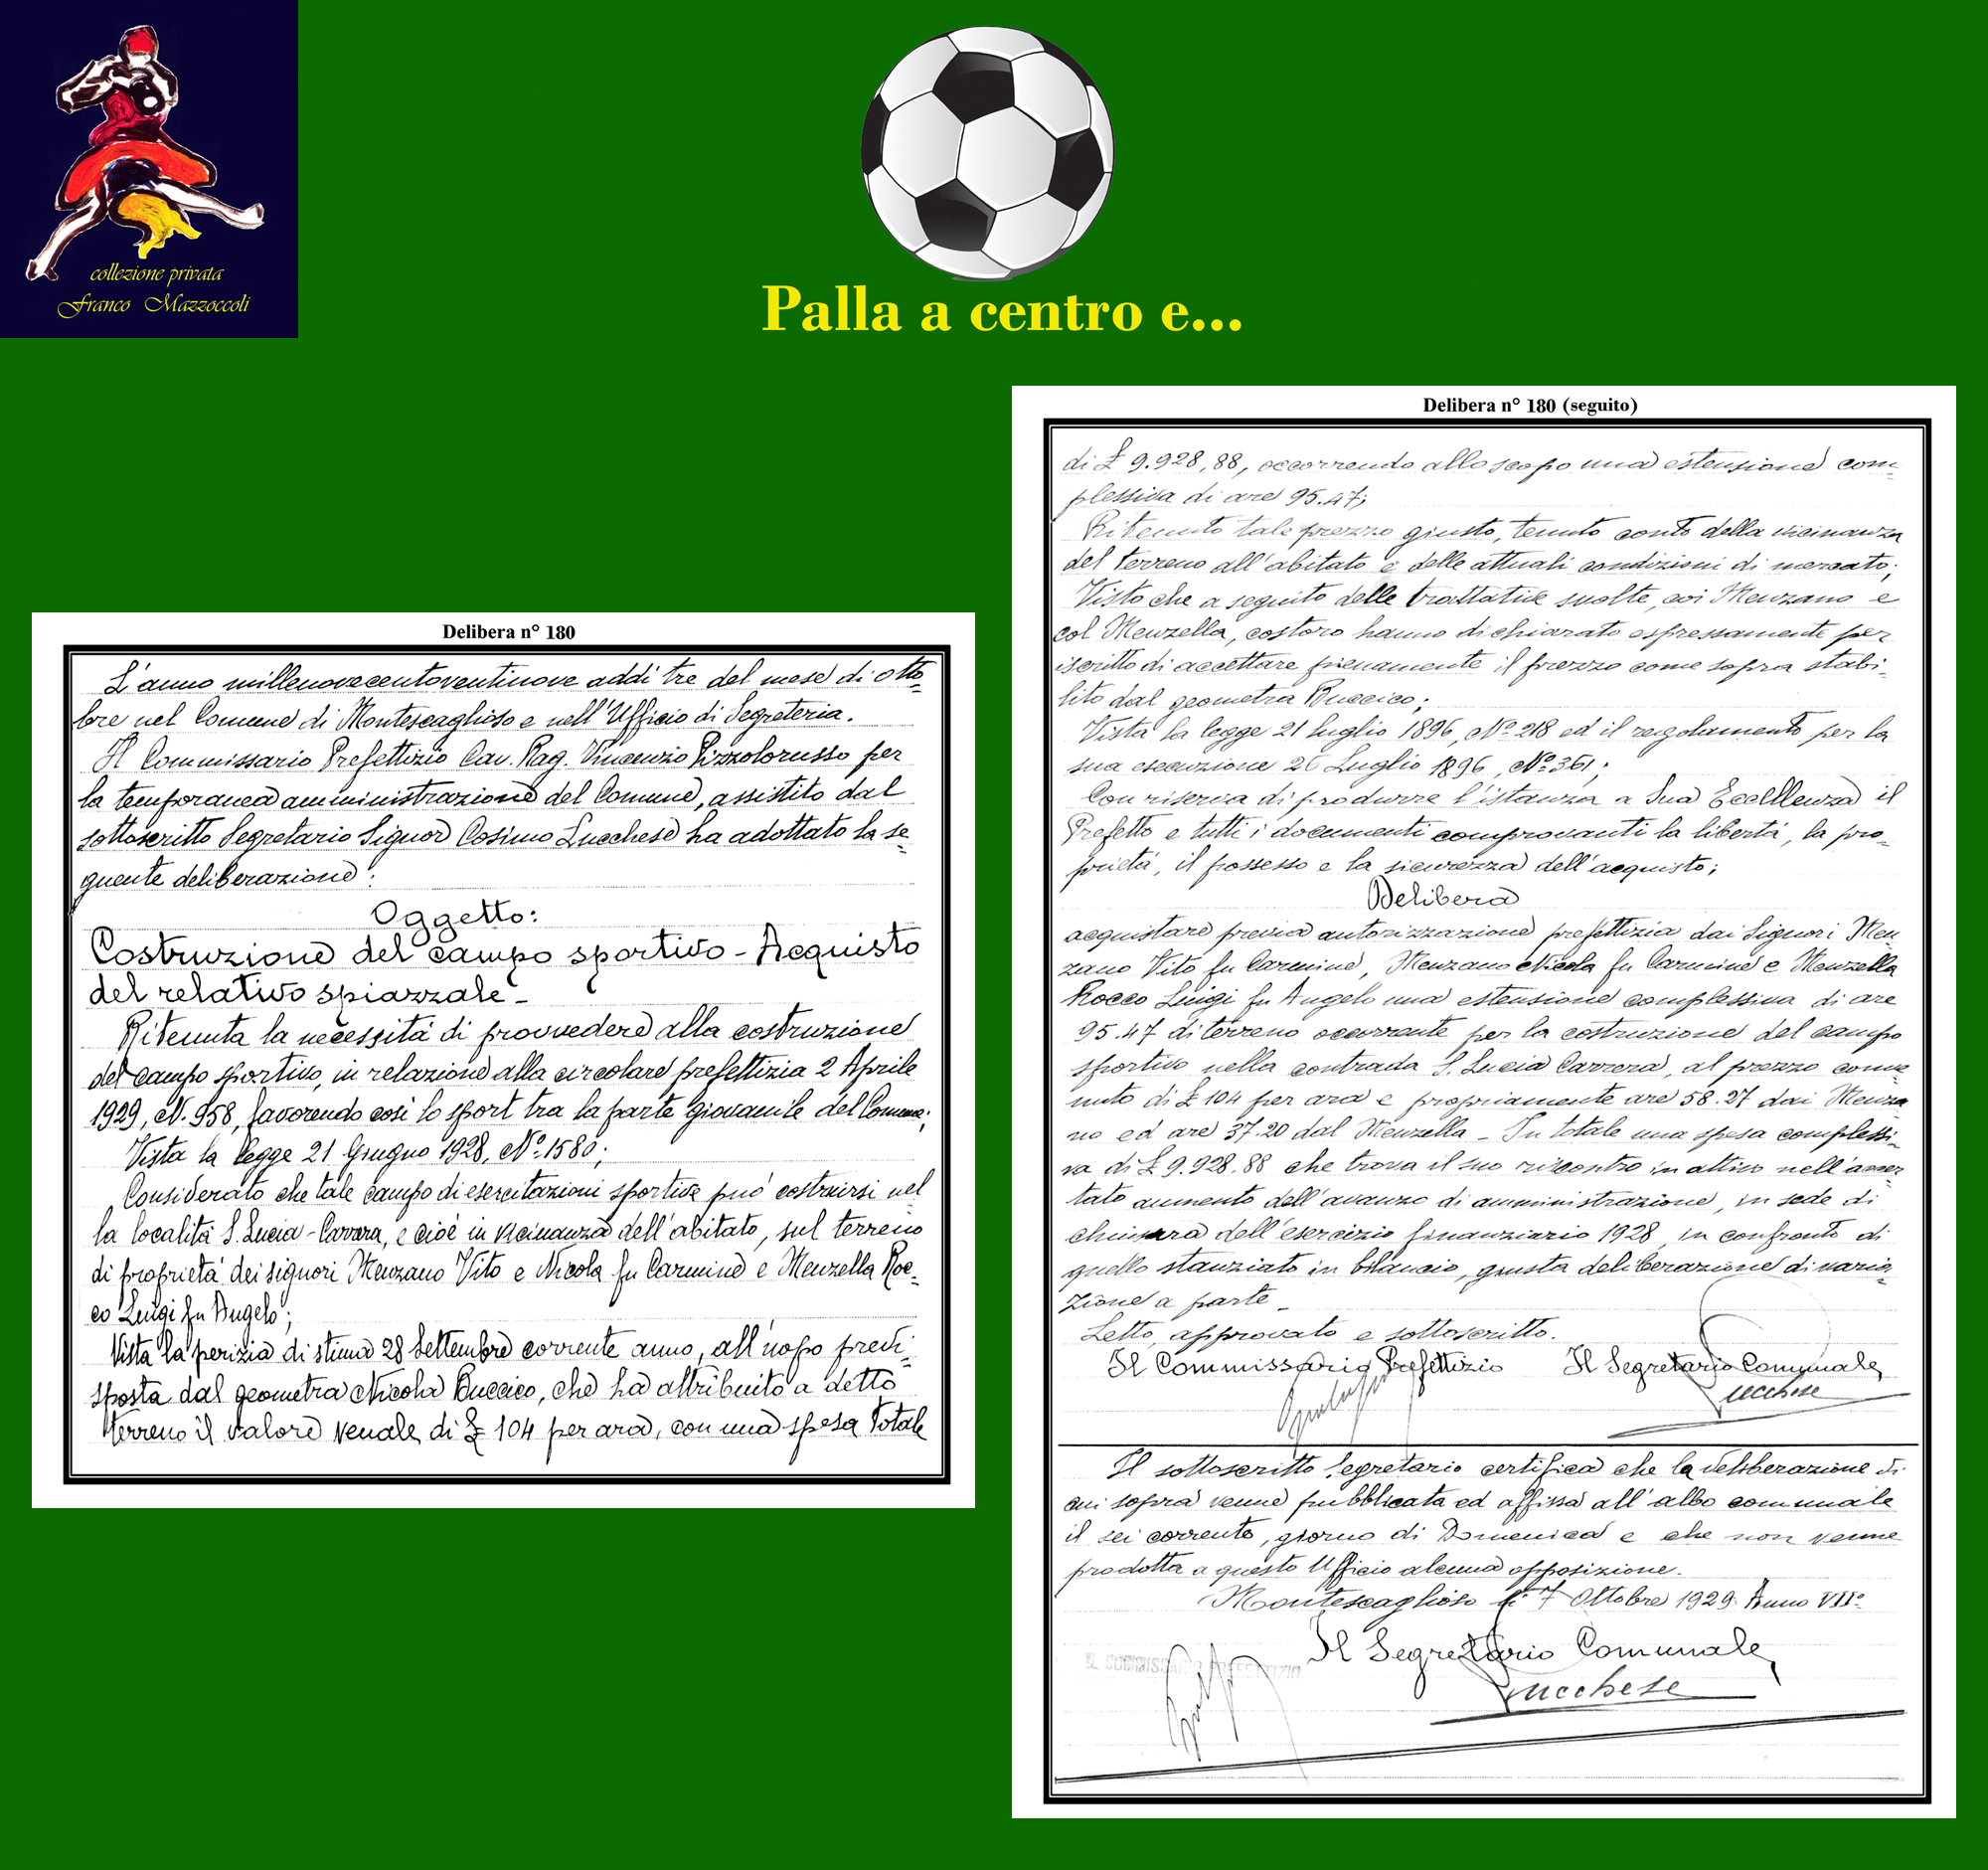 collezione privata
Franco Mazzoccoli
Palla a centro e...
Delibera n° 180
L'anno millenovecentoventinove addì tre del mese di otto-
bre nel Comune di Montescaglioso e nell'Ufficio di Segreteria.
Il Commissario Prefettizio Cav. Rag. Vincenzio Pizzolorusso per
la temporanea amministrazione del Comune, assistito dal
sottoscritto Segretario Signor Cosimo Lucchese ha adottato la se-
guente deliberazione:
Oggetto:
Costruzione del campo sportivo - Acquisto
del relativo spiazzale -
Ritenuta la necessità di provvedere alla costruzione
del campo sportivo, in relazione alla circolare prefettizia 2 Aprile
1929, N. 958, favorendo così lo sport tra la parte giovanile del Comune;
Vista la legge 21 Giugno 1928, Nº 1580;
Considerato che tale campo di esercitazioni sportive può costruirsi nel
la località S. Lucia - Carrara, e cioè in vicinanza dell'abitato, sul terreno
di proprietà dei signori Menzano Vito e Nicola fu Carmine e Menzella Roc-
co Luigi fu Angelo;
Vista la perizia di stima 28 Settembre corrente anno, all'uopo predi-
sposta dal geometra Nicola Buccico, che ha attribuito a detto
terreno il valore venale di £ 104 per ara, con una spesa totale
Delibera n° 180 (seguito)
di £ 9.928,88, occorrendo allo scopo una estensione com-
plessiva di are 95.47;
Ritenuto tale prezzo giusto, tenuto conto della vicinanza
del terreno all'abitato e delle attuali condizioni di mercato;
Visto che a seguito delle trattative svolte, coi Menzano e
col Menzella, costoro hanno dichiarato espressamente per
iscritto di accettare pienamente il prezzo come sopra stabi-
lito dal geometra Buccico;
Vista la legge 21 luglio 1896, Nº 218 ed il regolamento per la
sua esecuzione 26 Luglio 1896, Nº 361;
Con riserva di produrre l'istanza a Sua Eccellenza il
Prefetto e tutti i documenti comprovanti la libertà, la pro-
prietà, il possesso e la sicurezza dell'acquisto;
Delibera
acquistare previa autorizzazione prefettizia dai Signori Men-
zano Vito fu Carmine, Menzano Nicola fu Carmine e Menzella
Rocco Luigi fu Angelo una estensione complessiva di are
95.47 di terreno occorrente per la costruzione del campo
sportivo nella contrada S. Lucia Carrera, al prezzo conve
nuto di £ 104 per ara e propriamente are 58.27 dai Menza
no ed are 37.20 dal Menzella - In totale una spesa complessi-
va di £ 9.928.88 che trova il suo riscontro in attivo nell'accer
tato aumento dell'avanzo di amministrazione, in sede di
chiusura dell'esercizio finanziario 1928, in confronto di
quello stanziato in bilancio, giusta deliberazione di varia-
zione a parte -
Letto, approvato e sottoscritto.
Il Commissario Prefettizio Il Segretario Comunale
Lucchese
Il sottoscritto Segretario certifica che la deliberazione di
cui sopra venne pubblicata ed affissa all'albo comunale
il sei corrente, giorno di Domenica e che non venne
prodotta a questo Ufficio alcuna opposizione.
Montescaglioso li 7 Ottobre 1929 Anno VIIº
Il Segretario Comunale
IL COMMISSARIO PREFETTIZIO
Lucchese